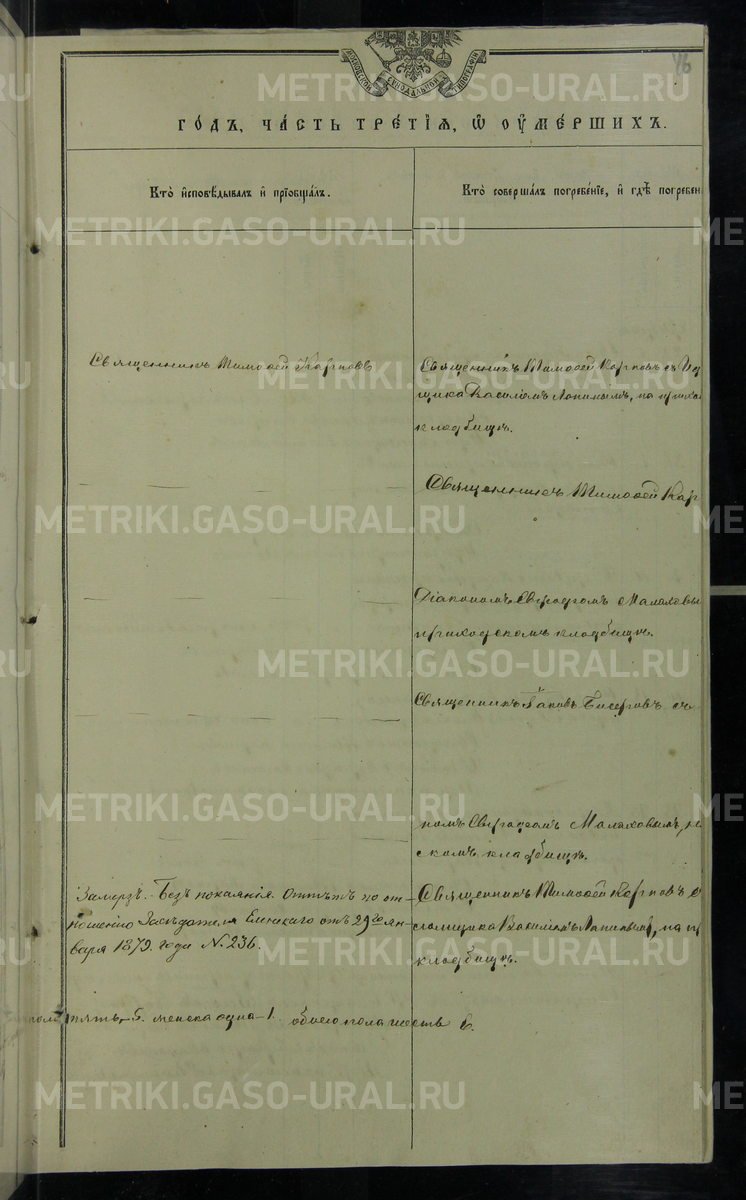 МОСКОВСКОЙ СѴНОДАЛЬНОЙ ТИПОГРАФІИ
46
ГО́ДЪ, ЧА́СТЬ ТРЕ́ТІѦ, Ѡ҆ ОУ҆МЕ́РШИХЪ.
Кто̀ и҆сповѣ́дывалъ и҆ прїобща́лъ.
Кто̀ соверша́лъ погребе́нїе, и҆ гдѣ̀ погребен
Священникъ Тимоѳей Карповъ
Священникъ Тимоѳей Карповъ съ
щика Василіемъ Лопинымъ, на
кладбищѣ.
Священникъ Тимоѳей Кар
Діакономъ Евграфомъ Малаховы
приходскомъ кладбищѣ.
Священникъ Іаковъ Бисеровъ съ
номъ Евграфомъ Малаховымъ,
скомъ кладбищѣ.
Замерзъ. Безъ покаянія. Отпѣтъ по от-
ношенію Засѣдателя от 29го ян-
варя 1879. года №. 236.
Священникъ Тимоѳей Карповъ с
ломщика Василіемъ Лапинымъ, на п
кладбищѣ.
пола пять - 5. женска одна - 1. обоего пола шесть 6.
METRIKI.GASO-URAL.RU